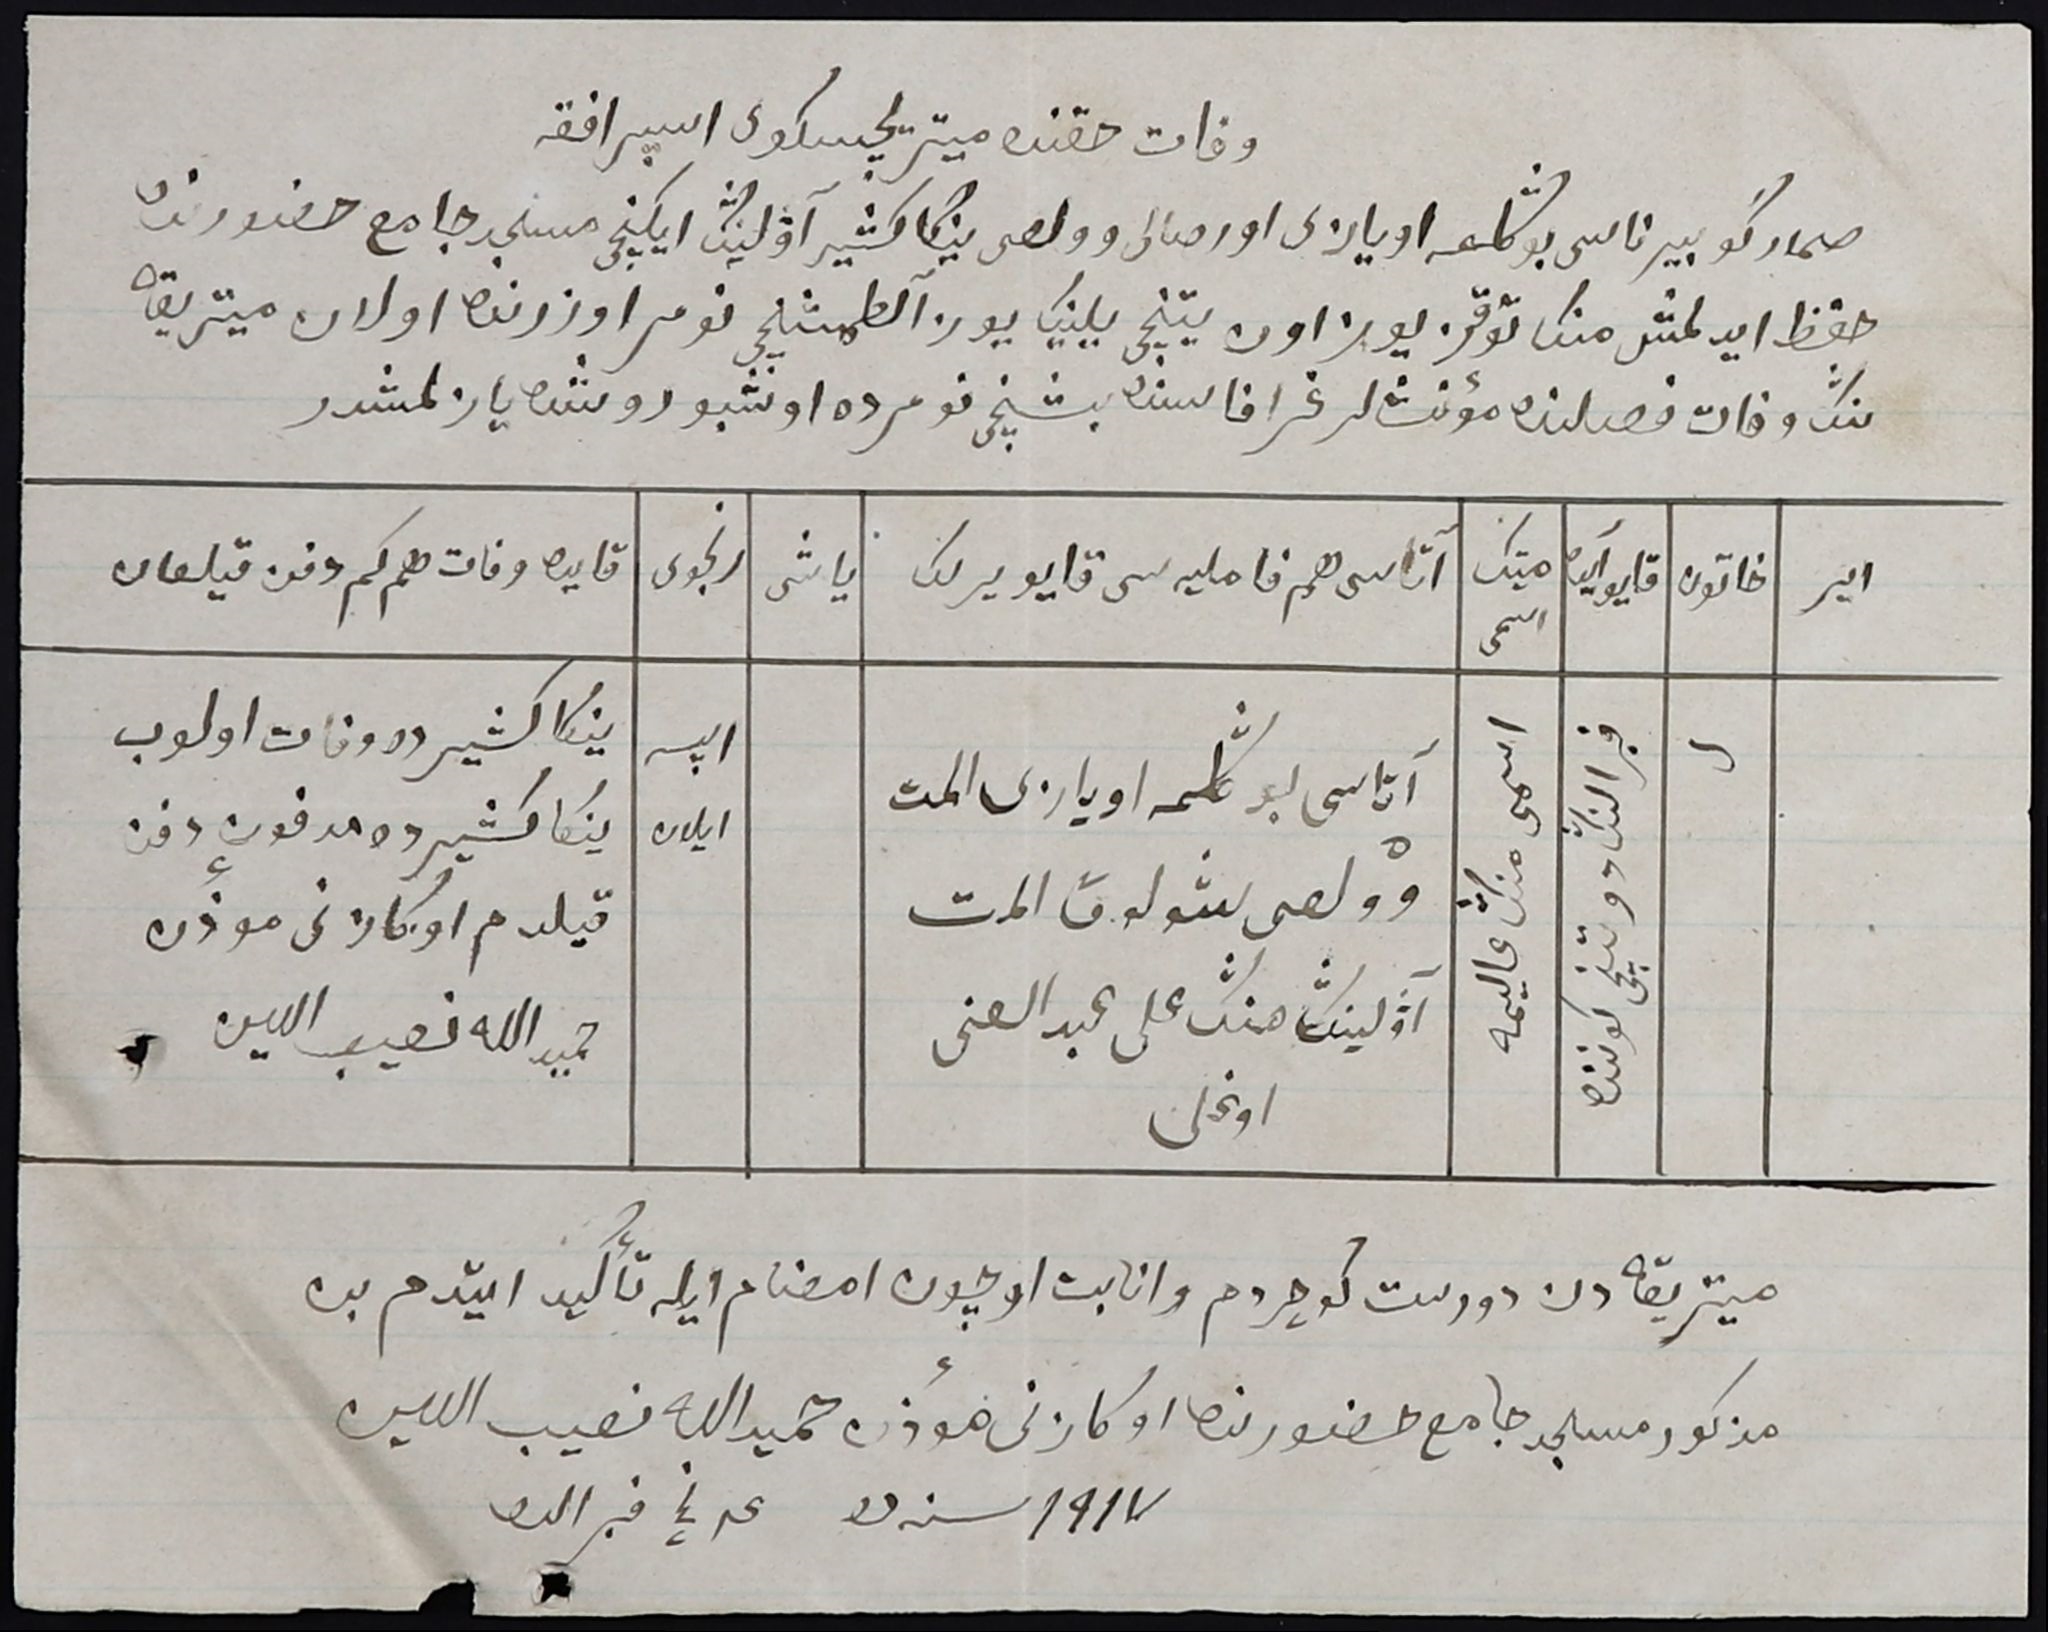 وفات حقنده میتریچیسکوی اسپرافقه
صمار گوبیرناسی بوگلمه اویازی اورصالی وولصی ینگا کشیر آولینڭ ایکنچی مسجد جامع حضورنده
حفظ ایدلمش منک توقز یوز اون یتنچی یلینک یوز آلطمشنچی نومر اوزرنده اولان میتریقه
ننڭ وفات فصلنده مؤنث لر غرافاسنده بشنچی نومرده اوشبو روشده یازلمشدر
ایر
خاتون
قایو آیده
میتک اسمی
آتاسی هم فاملیه سی قایو یرلک
یاشی
رنجوی
قایده وفات هم کم دفن قیلغان
فبرالنڭ دورتنچی کوننده
اسمی منڭ عالیمه
آتاسی بوگلمه اویازی المت
وولصی شولوق المت
آولینڭ هنڭ علی عبد الغنی
اوغلی
ایسه
ایلان
ینگا کشیر ده وفات اولوب
ینگا کشیر ده مدفون دفن
قیلدم اوکازنی موءذن
حمید الله نصیب الدین
میتریقه دن دورست کوچردم و اثابت اوچون امضام ایله تأکید ایتدم بن
مذکور مسجد جامع حضورنده اوکازنی موءذن حمید الله نصیب الدین
۱۹۱۷ سنه ده نچی فبرالده